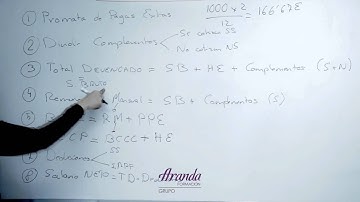 ① Prorrata de Pagas Extras 1000 x 2 / 12 = 166'67€
② Dividir Complementos Si cotizan SS
No cotizan NS
③ Total Devengado = SB + HE + Complementos (S+N)
S. Bruto
④ Mensual = SB + Complementos (S)
= RM + PPE
CP = BCCC + HE
SS
IRPF
⑧ Salario Neto = TD -
Aranda
FORMACIÓN
GRUPO